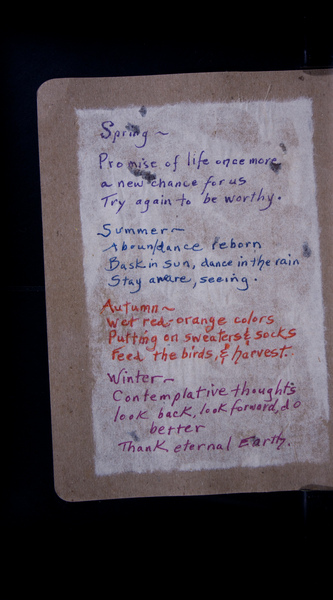 Spring ~
Promise of life once more
a new chance for us
Try again to be worthy.
Summer ~
Abundance reborn
Bask in sun, dance in the rain
Stay aware, seeing.
Autumn ~
Wet red-orange colors
Putting on sweaters & socks
Feed the birds, & harvest.
Winter ~
Contemplative thoughts
look back, look forward, do
better
Thank eternal Earth.